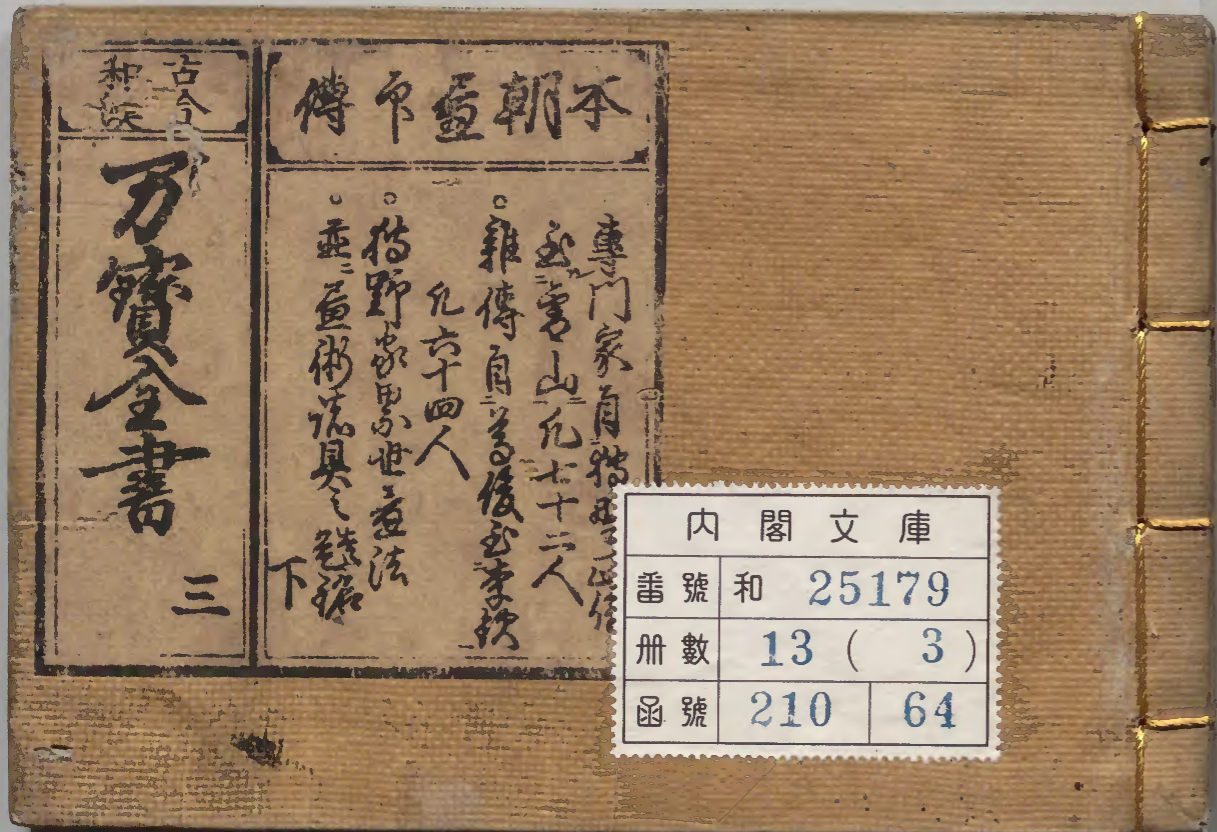 本朝畫印傳
專門家自狩野正信
至雪山凡七十二人
○雜傳自尊俊至李欽
凡六十四人
○狩野家累世畫法
○並ニ畫術諸具之
下
古今
和漢
万寳全書
三
內閣文庫
番號 和 25179
册數 13 ( 3 )
函號 210 64